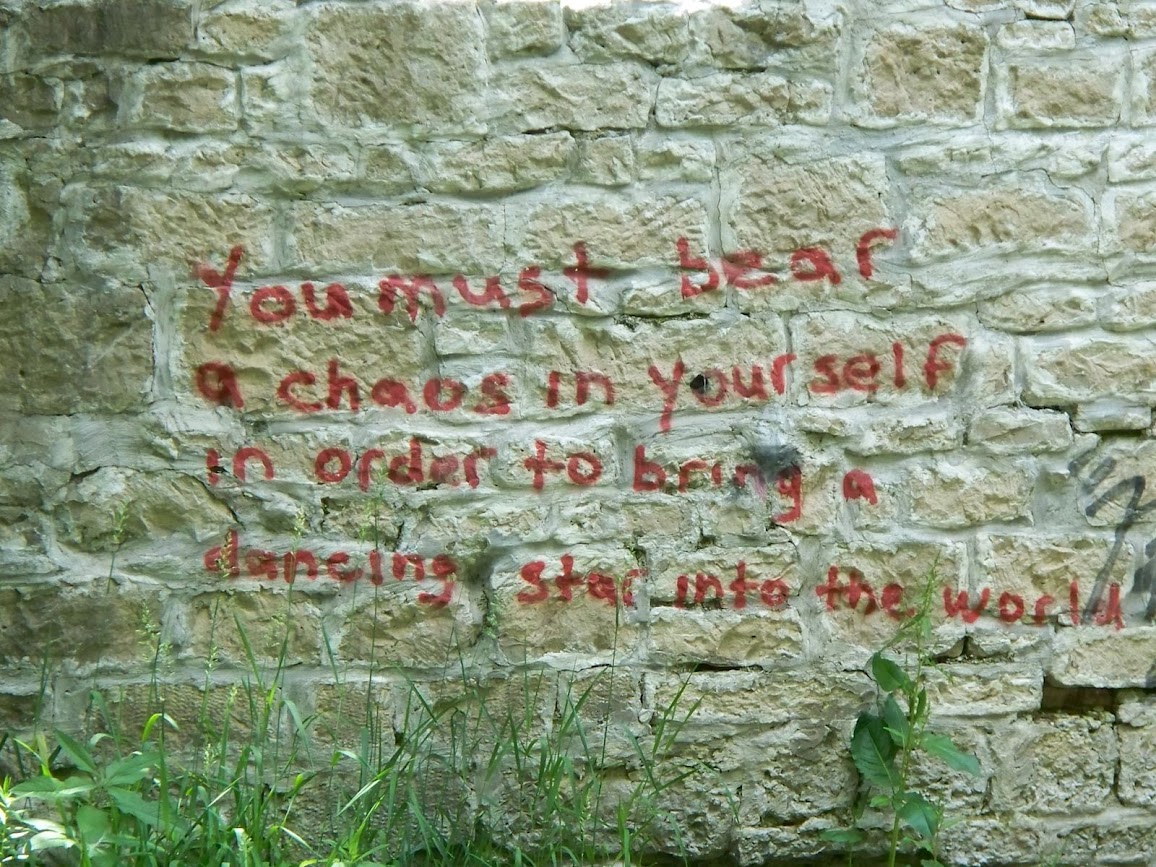 You must bear
a chaos in yourself
in order to bring a
dancing star into the world